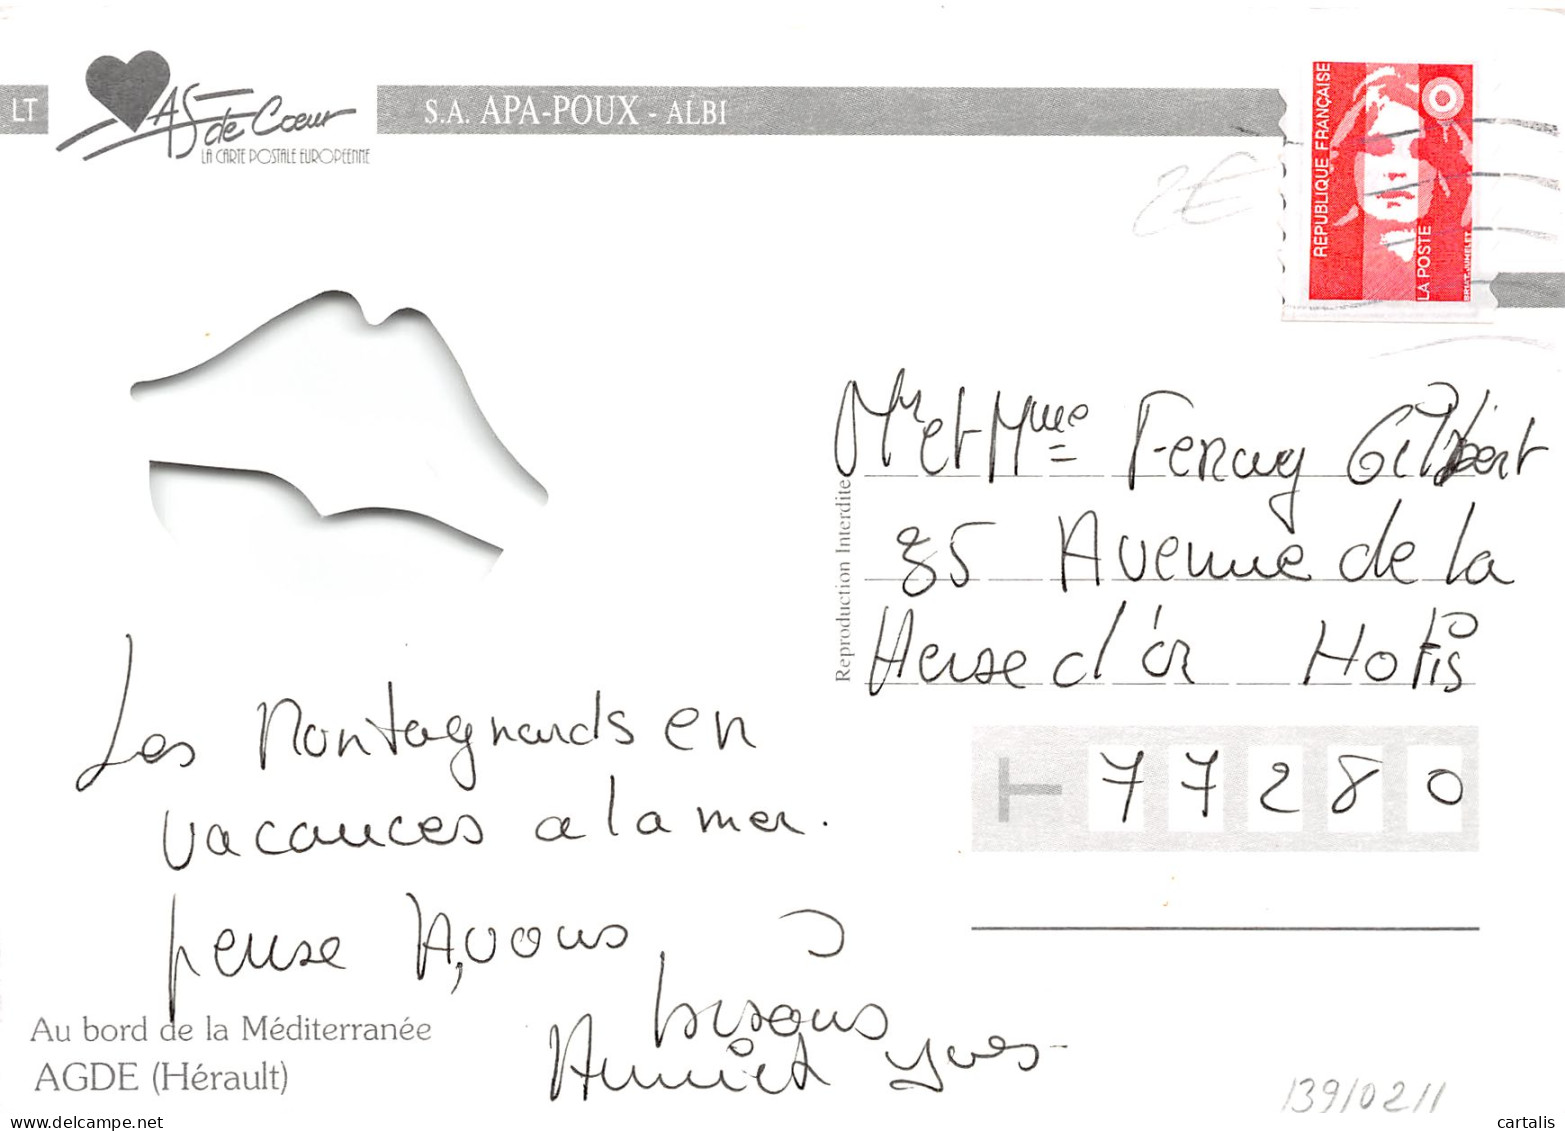 LT
AS de Cœur
LA CARTE POSTALE EUROPEENNE
S.A. APA-POUX - ALBI
2€
REPUBLIQUE FRANÇAISE
LA POSTE
Reproduction Interdite
Mr et Mme Fenuy Gilbert
35 Avenue de la
Herse d'or Hotis
77280
Les Montagnards en
vacances a la mer.
pense A, vous
bisous
Annie et Yves
Au bord de la Méditerranée
AGDE (Hérault)
139/0211
cartalis
delcampe.net